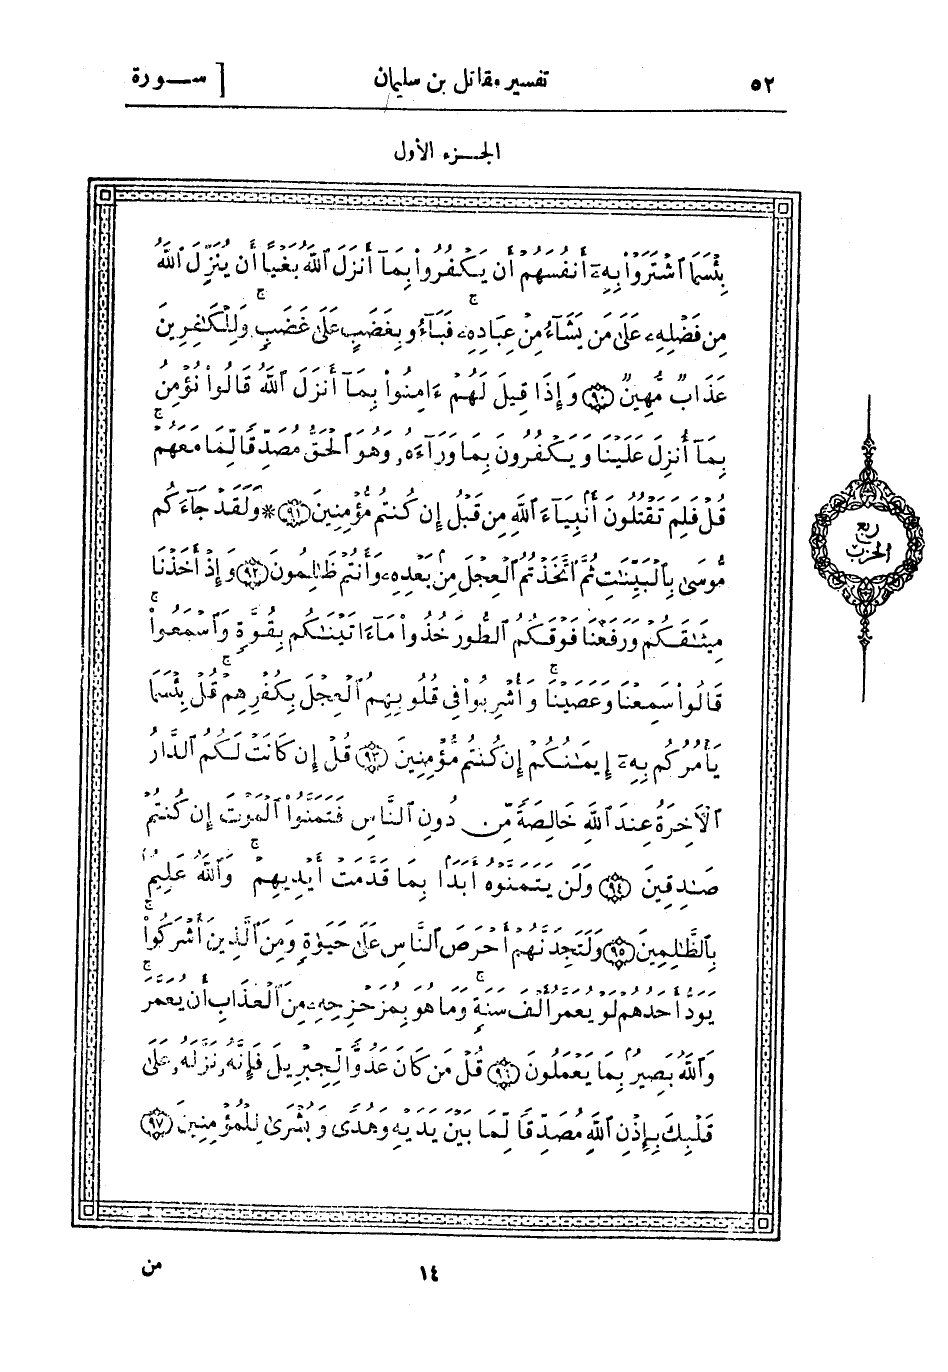 ٥٢ تفسير مقاتل بن سليمان [ ســـورة
الجـــزء الأول
بِئْسَمَا ٱشْتَرَوْا۟ بِهِۦٓ أَنفُسَهُمْ أَن يَكْفُرُوا۟ بِمَآ أَنزَلَ ٱللَّهُ بَغْيًا أَن يُنَزِّلَ ٱللَّهُ
مِن فَضْلِهِۦ عَلَىٰ مَن يَشَآءُ مِنْ عِبَادِهِۦ ۖ فَبَآءُو بِغَضَبٍ عَلَىٰ غَضَبٍ ۚ وَلِلْكَـٰفِرِينَ
عَذَابٌ مُّهِينٌ ﴿٩٠﴾ وَإِذَا قِيلَ لَهُمْ ءَامِنُوا۟ بِمَآ أَنزَلَ ٱللَّهُ قَالُوا۟ نُؤْمِنُ
بِمَآ أُنزِلَ عَلَيْنَا وَيَكْفُرُونَ بِمَا وَرَآءَهُۥ وَهُوَ ٱلْحَقُّ مُصَدِّقًا لِّمَا مَعَهُمْ ۚ
قُلْ فَلِمَ تَقْتُلُونَ أَنۢبِيَآءَ ٱللَّهِ مِن قَبْلُ إِن كُنتُم مُّؤْمِنِينَ ﴿٩١﴾ * وَلَقَدْ جَآءَكُم
مُّوسَىٰ بِٱلْبَيِّنَـٰتِ ثُمَّ ٱتَّخَذْتُمُ ٱلْعِجْلَ مِنۢ بَعْدِهِۦ وَأَنتُمْ ظَـٰلِمُونَ ﴿٩٢﴾ وَإِذْ أَخَذْنَا
مِيثَـٰقَكُمْ وَرَفَعْنَا فَوْقَكُمُ ٱلطُّورَ خُذُوا۟ مَآ ءَاتَيْنَـٰكُم بِقُوَّةٍ وَٱسْمَعُوا۟ ۖ
قَالُوا۟ سَمِعْنَا وَعَصَيْنَا وَأُشْرِبُوا۟ فِى قُلُوبِهِمُ ٱلْعِجْلَ بِكُفْرِهِمْ ۚ قُلْ بِئْسَمَا
يَأْمُرُكُم بِهِۦٓ إِيمَـٰنُكُمْ إِن كُنتُم مُّؤْمِنِينَ ﴿٩٣﴾ قُلْ إِن كَانَتْ لَكُمُ ٱلدَّارُ
ٱلْـَٔاخِرَةُ عِندَ ٱللَّهِ خَالِصَةً مِّن دُونِ ٱلنَّاسِ فَتَمَنَّوُا۟ ٱلْمَوْتَ إِن كُنتُمْ
صَـٰدِقِينَ ﴿٩٤﴾ وَلَن يَتَمَنَّوْهُ أَبَدًۢا بِمَا قَدَّمَتْ أَيْدِيهِمْ ۗ وَٱللَّهُ عَلِيمٌۢ
بِٱلظَّـٰلِمِينَ ﴿٩٥﴾ وَلَتَجِدَنَّهُمْ أَحْرَصَ ٱلنَّاسِ عَلَىٰ حَيَوٰةٍ وَمِنَ ٱلَّذِينَ أَشْرَكُوا۟ ۚ
يَوَدُّ أَحَدُهُمْ لَوْ يُعَمَّرُ أَلْفَ سَنَةٍ وَمَا هُوَ بِمُزَحْزِحِهِۦ مِنَ ٱلْعَذَابِ أَن يُعَمَّرَ ۗ
وَٱللَّهُ بَصِيرٌۢ بِمَا يَعْمَلُونَ ﴿٩٦﴾ قُلْ مَن كَانَ عَدُوًّا لِّجِبْرِيلَ فَإِنَّهُۥ نَزَّلَهُۥ عَلَىٰ
قَلْبِكَ بِإِذْنِ ٱللَّهِ مُصَدِّقًا لِّمَا بَيْنَ يَدَيْهِ وَهُدًى وَبُشْرَىٰ لِلْمُؤْمِنِينَ ﴿٩٧﴾
ربع
الحزب
١٤ من